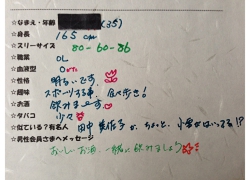 ☆なまえ・年齢 (35)
☆身長 165cm
☆スリーサイズ 80-60-86
☆職業 OL
☆血液型 O
☆性格 明るいです。
☆趣味 スポーツする事、食べ歩き!
☆お酒 飲みます
☆タバコ 少々
☆似ている?有名人 田中美佐子が、ちょっと、小雪がはいってる!?
☆男性会員さまへメッセージ
おいしーお酒、一緒に飲みましょう